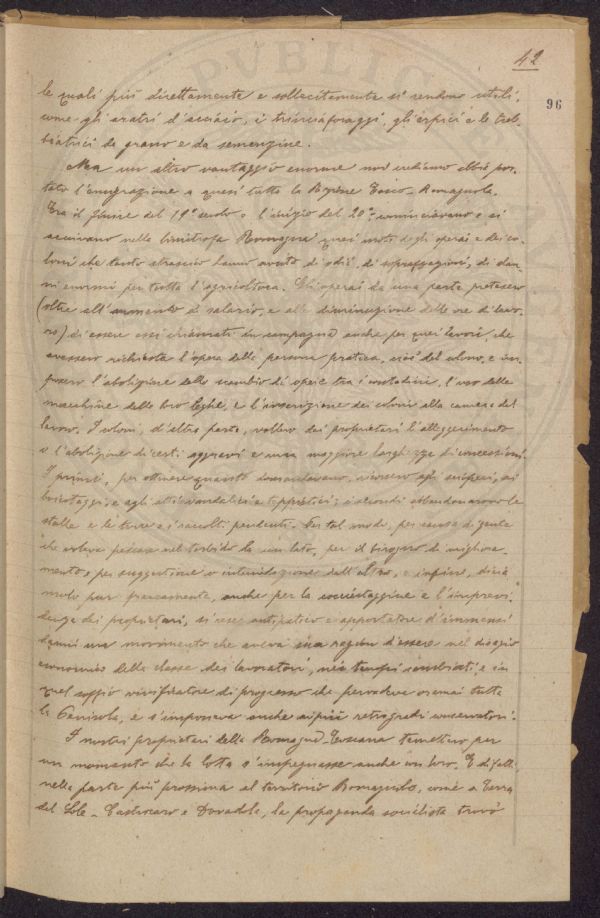 42
96
le quali più direttamente e sollecitamente si rendono utili,
come gli aratri d'acciaio, i trinciaforaggi, gli erpici e le treb-
biatrici da grano e da semenzine.
Ma un altro vantaggio enorme noi crediamo abbia por-
tato l'emigrazione a quasi tutta la Regione Tosco-Romagnola.
Tra il finire del 19° secolo e l'inizio del 20° cominciavano e si
acuivano nella limitrofa Romagna quei moti degli operai e dei co-
loni che tanto strascico hanno avuto di odii, di sopraffazioni, di dan-
ni enormi per tutta l'agricoltura. Gli operai da una parte pretesero
(oltre all'aumento di salario, e alla diminuzione delle ore di lavo-
ro) di essere essi chiamati in campagna anche per quei lavori, che
avessero richiesta l'opera della persona pratica, cioè del colono, e im-
posero l'abolizione dello scambio di opere tra i contadini, l'uso delle
macchine delle loro Leghe, e l'inscrizione dei coloni alla camera del
lavoro. I coloni, d'altra parte, vollero dai proprietari l'alleggerimento
o l'abolizione di certi aggravi e una maggiore larghezza di concessioni.
I primi, per ottenere quanto domandavano, vennero agli scioperi, ai
boicottaggi, e agli atti vandalici e teppistici; i secondi abbandonarono le
stalle e le terre e i raccolti pendenti. In tal modo, per causa di gente
che voleva pescare nel torbido da un lato, per il bisogno di migliora-
mento, per suggestione o intimidazione dall'altro, e infine, dicia-
molo pur francamente, anche per la cocciutaggine e l'imprevi-
denza dei proprietari, si rese antipatico e apportatore d'immensi
danni una movimento che aveva sua ragion d'essere nel disagio
economico della classe dei lavoratori, nei tempi cambiati e in
quel soffio vivificatore di progresso che pervadeva oramai tutta
la Penisola, e s'imponeva anche ai più retrogradi conservatori.
I nostri proprietari della Romagna-Toscana temettero per
un momento che la lotta s'impegnasse anche con loro. E difatti
nella parte più prossima al territorio Romagnolo, come a Terra
del Sole - Castrocaro e Dovadola, la propaganda socialista trovò